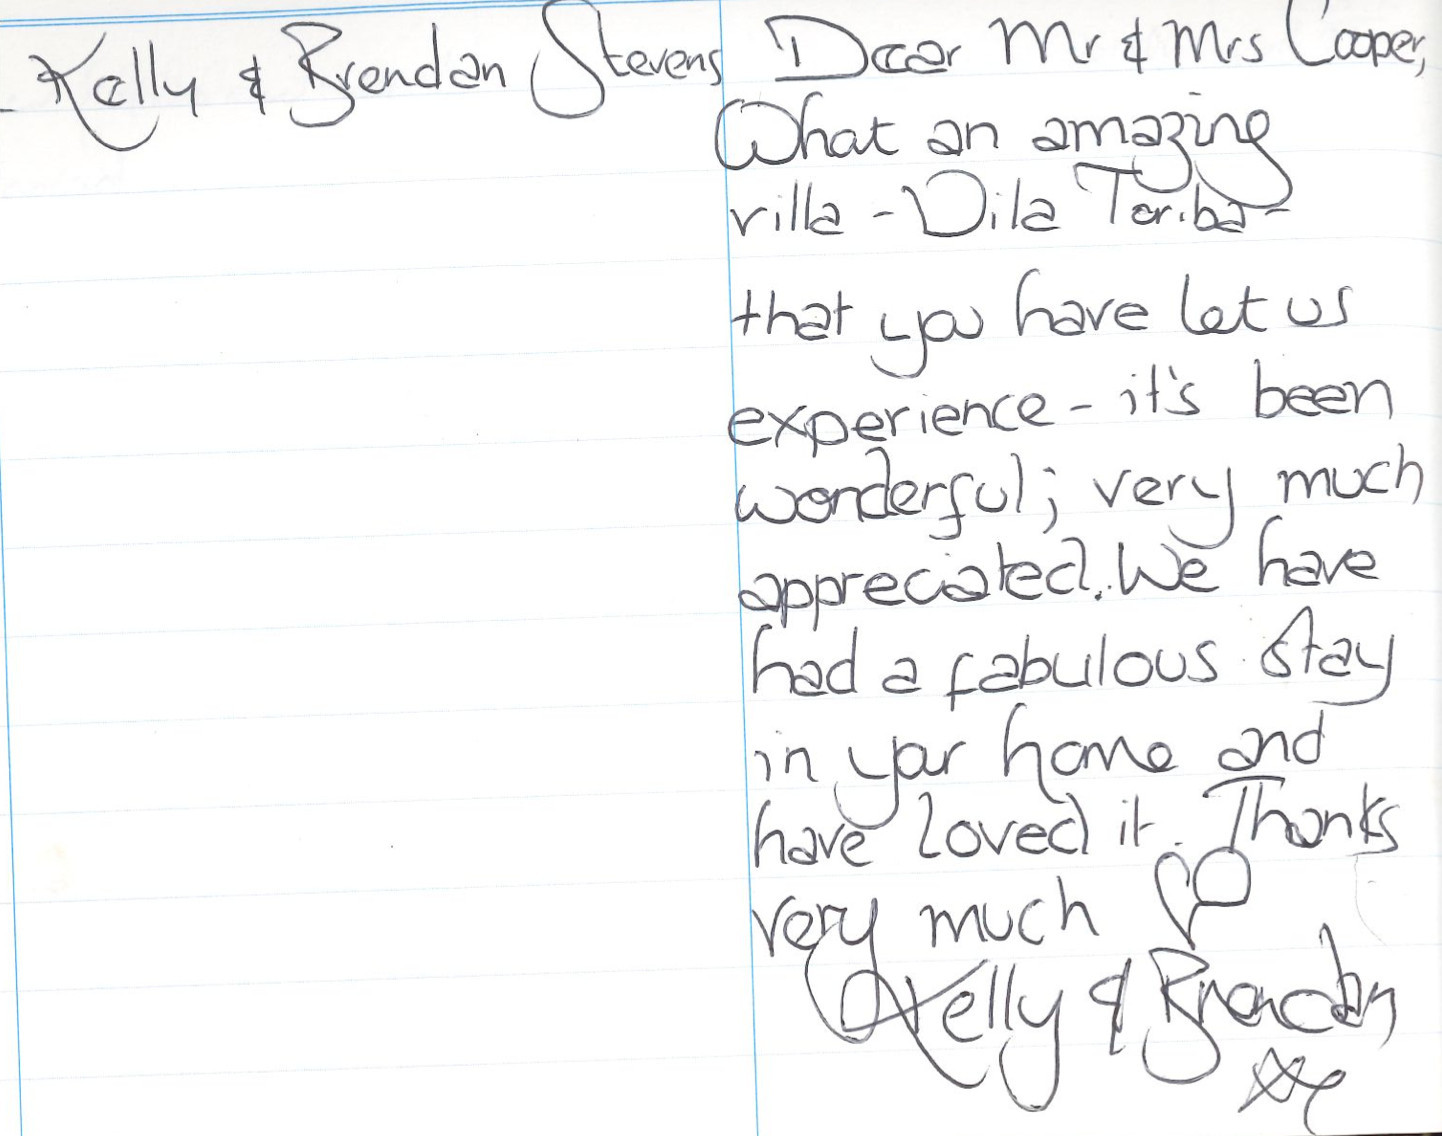 Kelly & Brendan Stevens
Dear Mr & Mrs Cooper,
What an amazing
villa - Vila Toriba -
that you have let us
experience - it's been
wonderful; very much
appreciated. We have
had a fabulous stay
in your home and
have loved it. Thanks
very much
Kelly & Brendan